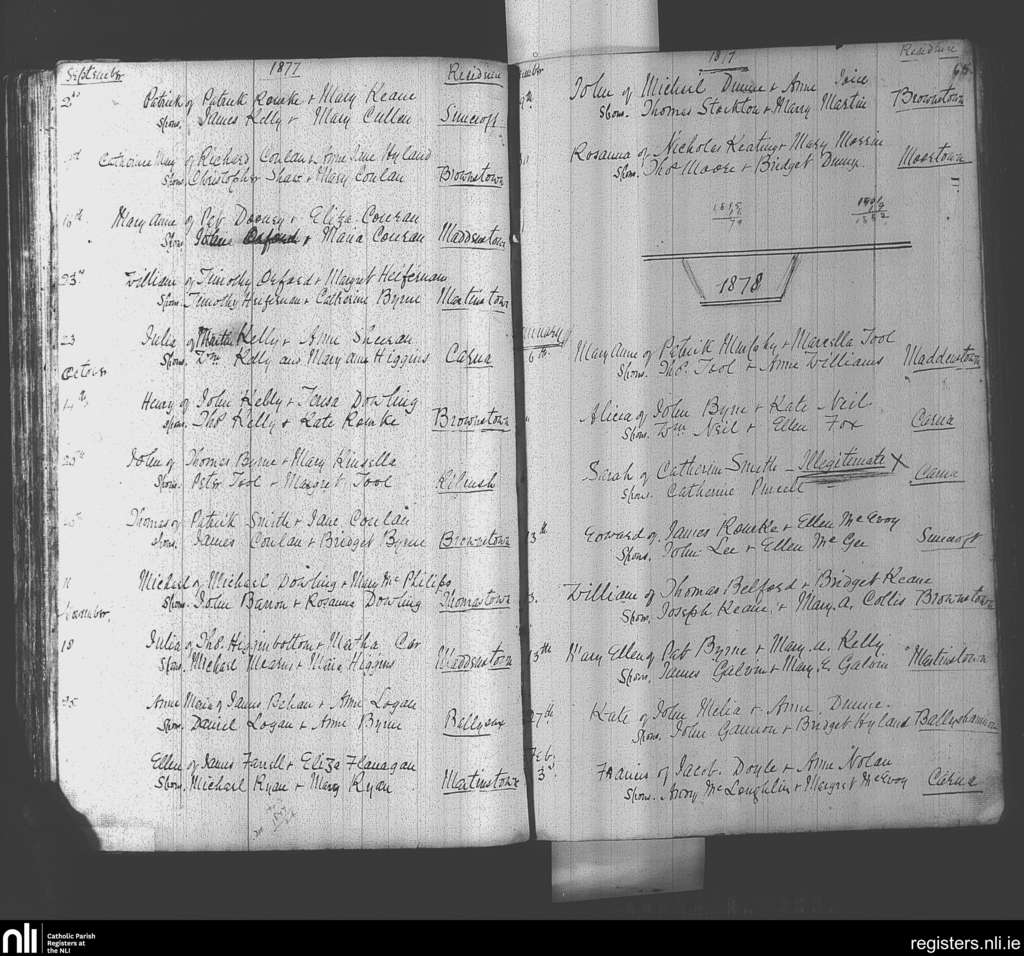 September 1877 Residence
2nd Patrick of Patrick Rourke + Mary Keane
Spons. James Kelly + Mary Cullen Suncroft
Catherine Mary of Richard Conlan + Anne Jane Hyland
Spons. Christopher Shaw + Mary Conlan Brownstown
16th Mary Anne of Pat Dooney + Eliza Couran
Spons. Orford + Maria Couran Maddenstown
23rd William of Timothy Orford + Margret Heifernan
Spons. Timothy Heifernan + Catherine Byrne Martinstown
23 Julia of Martin Kelly + Anne Sheeran
Spons. Wm Kelly and Mary anne Higgins Carna
October
14th Henry of John Kelly + Teresa Dowling
Spons. Thos Kelly + Kate Rourke Brownstown
John of Thomas Byrne + Mary Kinsella
Spons. Peter Tool + Margret Tool Kilrush
Thomas of Patrick Smith + Jane Conlan
Spons. James Conlan + Bridget Byrne Brownstown
11 Michael of Michael Dowling + Mary McPhilips
Spons. John Barron + Rosanna Dowling Thomastown
November
18 Julia of Thos Higginbottom + Matha Cor
Spons. Michael Mearns + Maria Higgins Maddenstown
25 Anne Maria of James Behan + Anne Logan
Spons. Daniel Logan + Anne Byrne Ballysax
Ellen of James Farrell + Eliza Flanagan
Spons. Michael Ryan + Mary Ryan Martinstown
1877 Residence
65
John of Michael Dunne + Anne Joice
Spons. Thomas Stockton + Mary Martin Brownstown
Rosanna of Nicholas Keating + Mary Morrin
Spons. Thos Moore + Bridget Dunn Moortown
1878
January
6th Mary Anne of Patrick Murphy + Marcella Tool
Spons. Thos Tool + Anne Williams Maddenstown
Alicia of John Byrne + Kate Neil
Spons. Wm Neil + Ellen Fox Carna
Sarah of Catherine Smith - Illegitimate X
Spons. Catherine Purcell Carna
13th Edward of James Rourke + Ellen McEvoy
Spons. John Lee + Ellen McGee Suncroft
William of Thomas Belford + Bridget Keane
Spons. Joseph Keane + Mary A. Collis Brownstown
13th Mary Ellen of Pat Byrne + Mary A. Kelly
Spons. James Galvin + Mary E Galvin Martinstown
27th Kate of John Melia + Anne Dunne
Spons. John Gannon + Bridget Hyland Ballyshannon
Feb
3rd Francis of Jacob Doyle + Anne Nolan
Spons. McLoughlin + Margret McEvoy Carna
nli Catholic Parish
Registers at
the NLI
registers.nli.ie